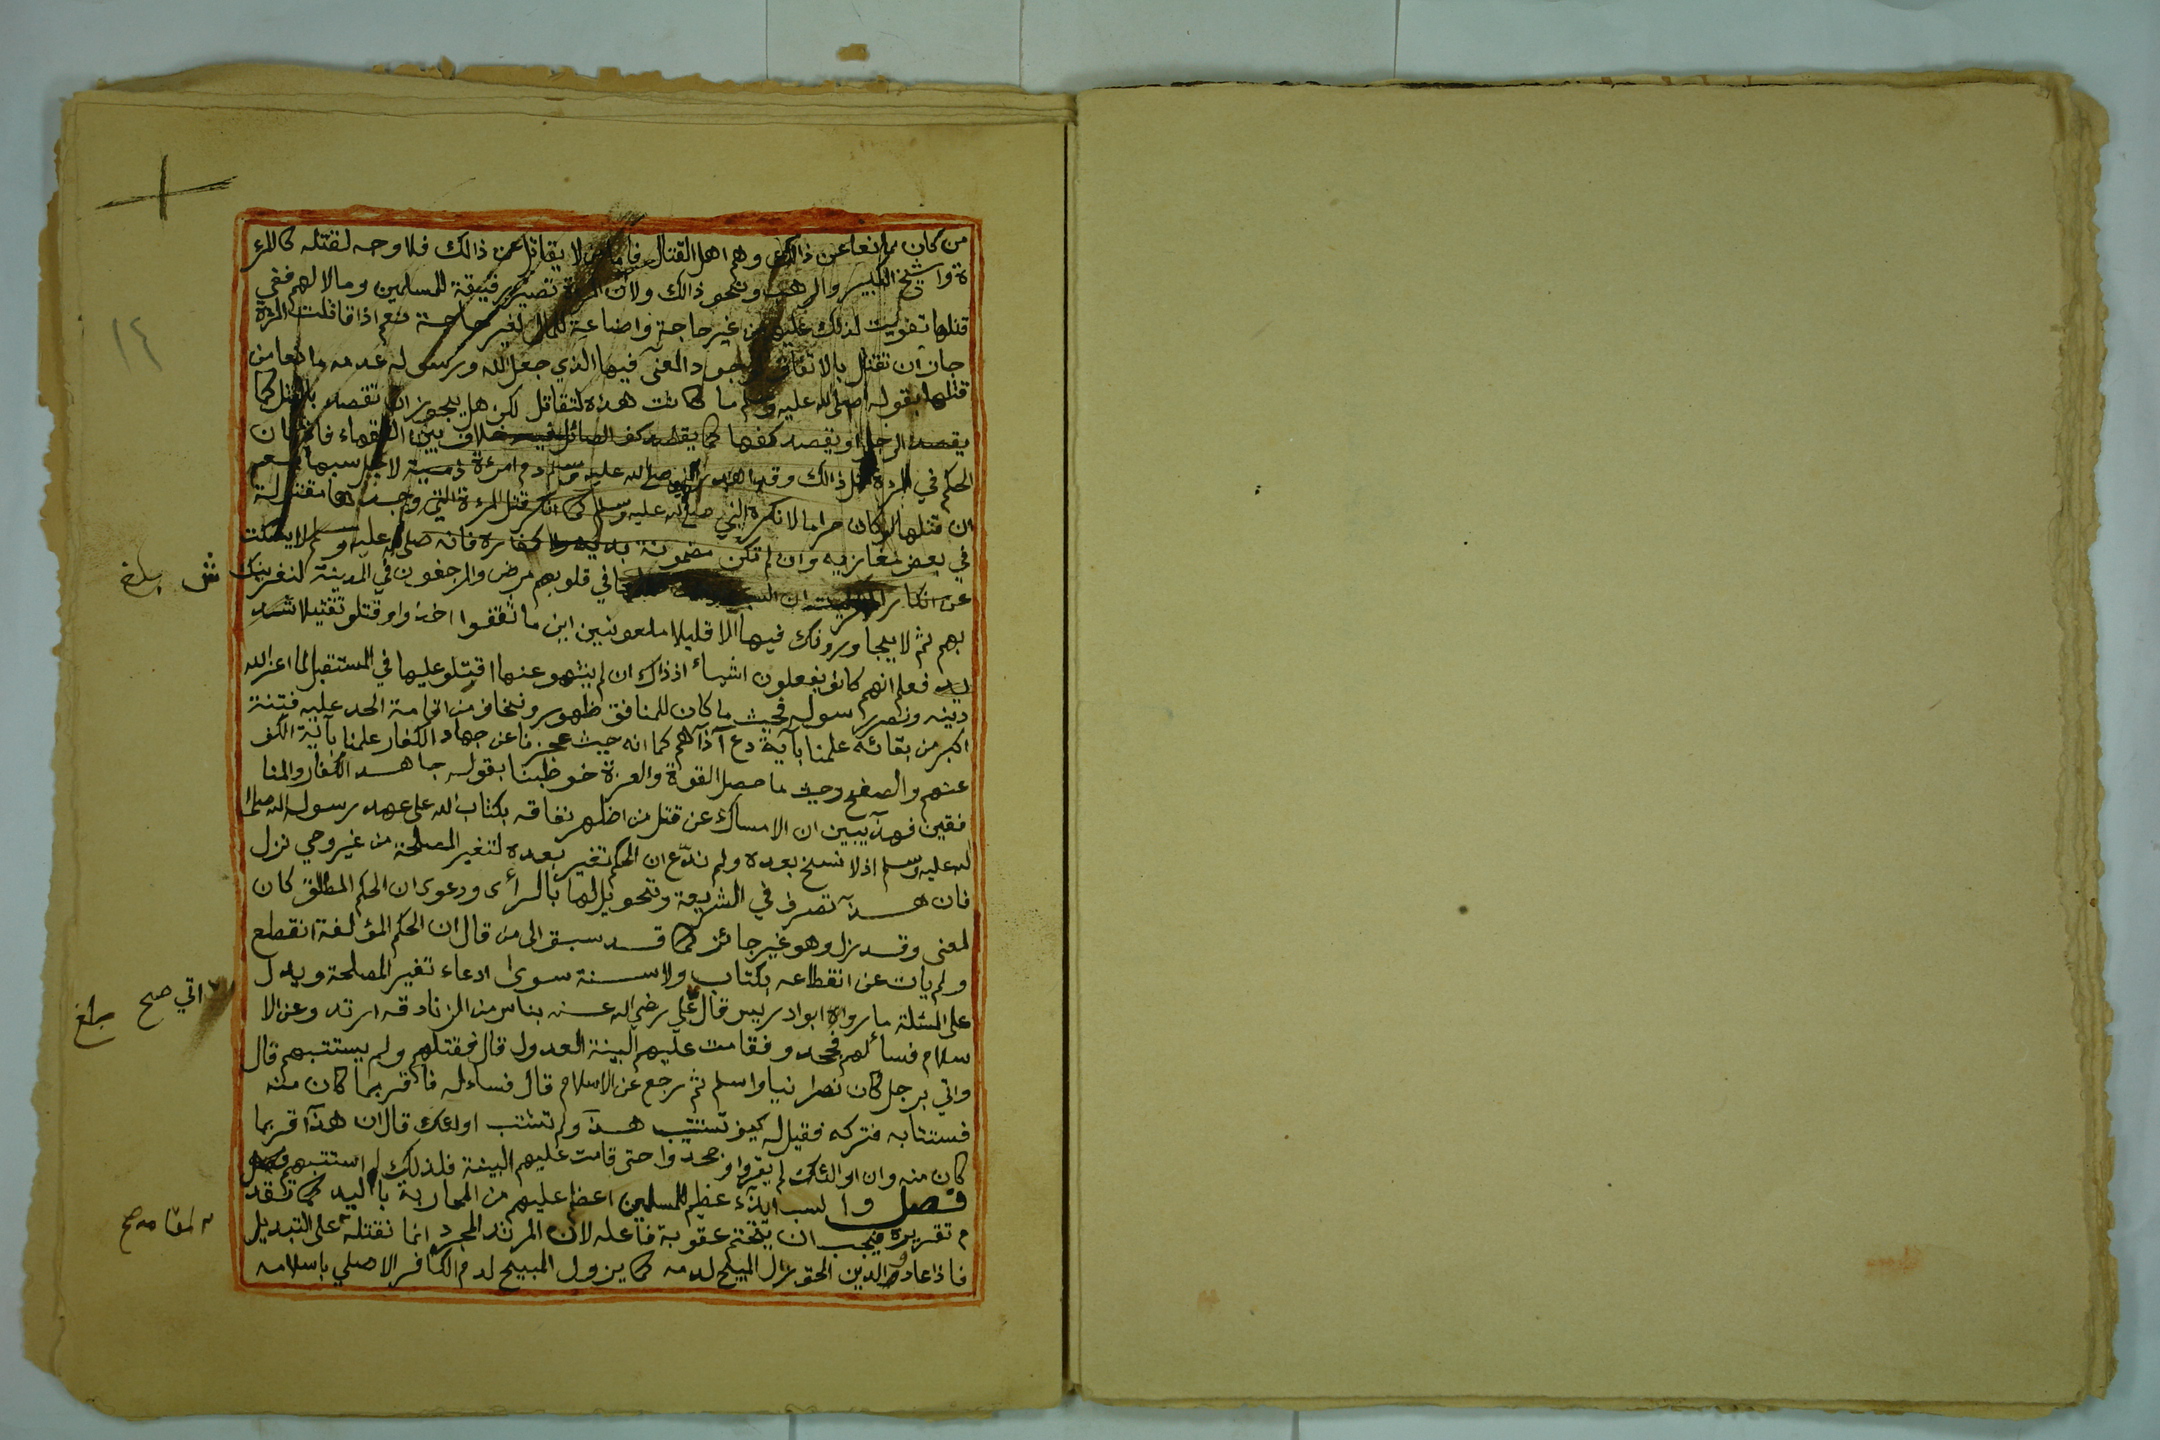 من كان مانعا عن ذالك وهم اهل القتال فاما من لا يقاتل عن ذالك فلا وجه لقتله كالمرء
ة واشيخ الكبير والراهب ونحو ذالك ولان المرءة تصير رقيقة للمسلمين ومالا لهم ففي
قتلها تفويت لذلك عليهم من غير حاجة واضاعة للمال لغير حاجة نعم اذا قاتلت المرءة
جاز ان تقتل بالاتفاق لوجود المعنى فيها الذي جعل الله ورسوله عدمه مانعا من
قتلها بقوله صلى الله عليه وسلم ما كانت هذه لتقاتل لكن هل يجوز ان تقصد بالقتل كما
يقصد الرجل او يقصد كفها كما يقصد كف الصائل فيه خلاف بين الفقهاء فاذا كان
الحكم في المرءة مثل ذالك وقد اهدر النبي صلى الله عليه وسلم دم امرءة ذمية لاجل سبها مع
ان قتلها لو كان حراما لانكره النبي صلى الله عليه وسلم كما انكر قتل المرءة التي وجدها مقتولة
في بعض مغازيه وان لم تكن مضمونة بدية ولا كفارة فانه صلى الله عليه وسلم لا يسكت
عن انكار المنكر في قلوبهم مرض والمرجفون في المدينة لنغرينك
بهم ثم لا يجاورونك فيها الا قليلا ملعونين اين ما ثقفوا اخذوا وقتلو تقتيلا شد
يد فعلم انهم كانو يفعلون اشياء اذ ذاك ان لم ينتهو عنها اقتلو عليها في المستقبل لما اعز الله
دينه ونصر رسوله فحيث ما كان للمنافق ظهور ونخاف من اقامة الحد عليه فتنة
اكبر من بقائه علمنا بآية دع آذاهم كما انه حيث عجزنا عن جهاد الكفار علمنا بآية الكف
عنهم والصفح وحيث ما حصل القوة والعزة خوطبنا بقوله جاهد الكفار والمنا
فقين فهذ يبين ان الامساك عن قتل من اظهر نفاقه بكتاب الله على عهد رسول الله صلى ا
لله عليه وسلم اذ لا نسخ بعده ولم ندّع ان الحكم تغير بعده لتغير المصلحة من غير وحي نزل
فان هذ تصرف في الشريعة وتحويل لها بالرأى ودعوى ان الحكم المطلق كان
لمعنى وقد زل وهو غير جائز كما قد سبق الى من قال ان الحكم المؤلفة انقطع
ولم يات عن انقطاعه بكتاب ولا سنة سوى ادعاء تغير المصلحة ويدل
على المسئلة ما رواه ابو ادريس قال علي رضي الله عنه بناس من الزنادقه ارتد وعن الا
سلام فسألهم فجحد و فقامت عليهم البينة العدول قال فقتلهم ولم يستتبهم قال
واتي برجل كان نصرانيا واسلم ثم رجع عن الاسلام قال فساءله فاقر بما كان منه
فستتابه فتركه فقيل له كيف تستتيب هذ ولم تستتب اولئك قال ان هذا قر بما
كان منه وان اولئك لم يقروا وجحدوا حتى قامت عليهم البينة فلذلك لم استتبهم
فصل وا لسب ايذء عظم للمسلمين اعظم عليهم من المحاربة باليد كما تقد
م تقريره فيجب ان يتختم عقوبة فاعله لان المرتد المجرد انما نقتله على التبديل
فاذا عاد و الدين الحق زال المبيح لدمه كما يزول المبيح لدم الكافر الاصلي باسلامه
١٤
ش بلغ
اتي صح بلغ
صح